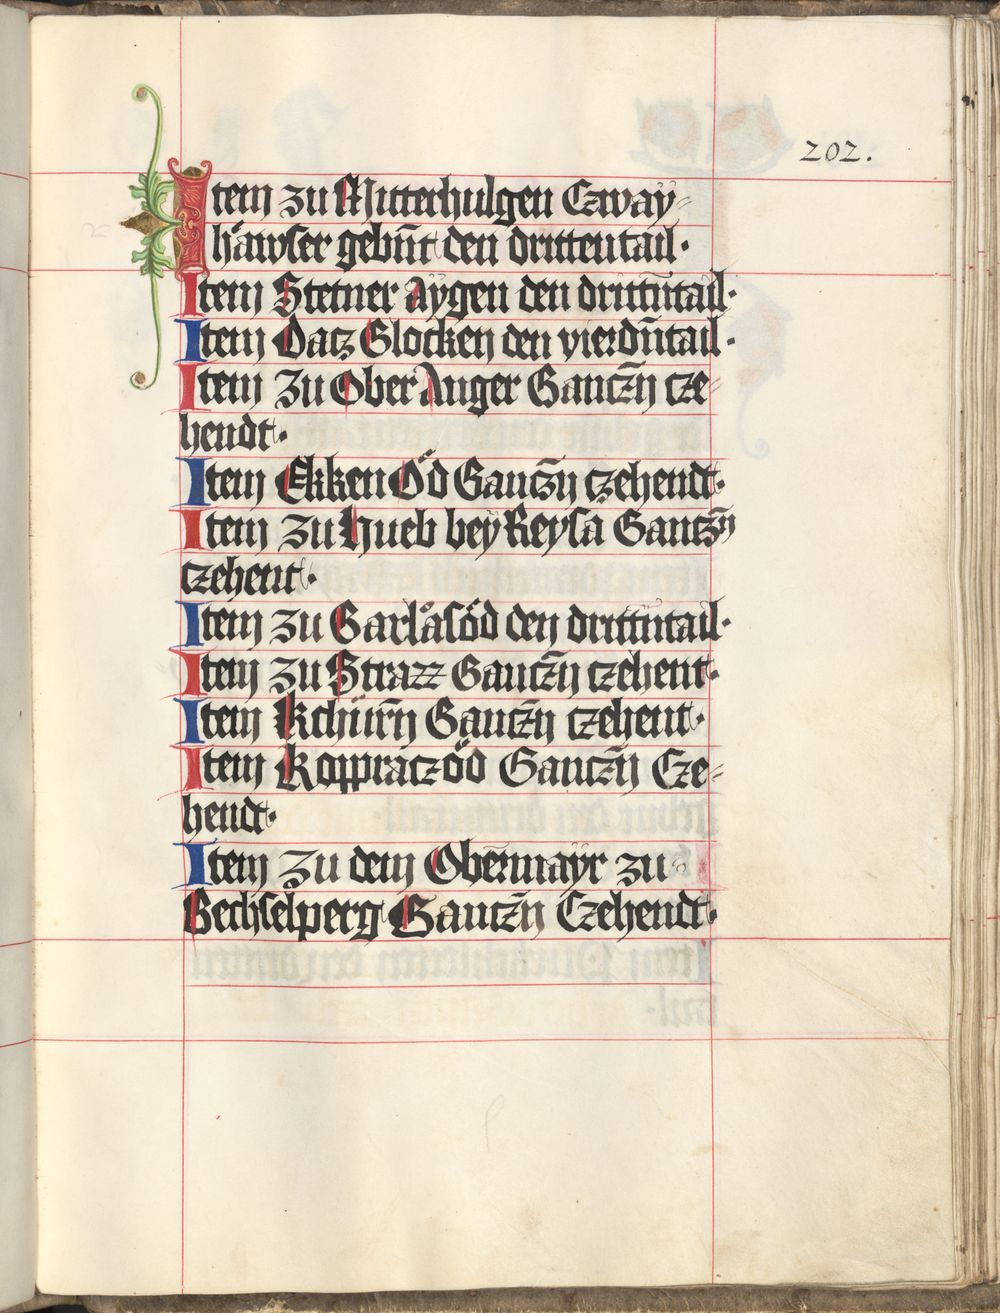 202.
Item zu Mitterhulgen Czway-
häwser gebūrt den drittentail.
Item Stetner Aÿgen den drittn̄tail.
Item Datz Glocken den vierdn̄tail.
Item Zu Ober Anger Gantczn̄ cze-
hendt.
Item Ekken Öd Gantczn̄ czehendt.
Item zu Hueb beÿ Reysa Gantczn̄
czehent.
Item zu Garlåsöd den drittn̄tail.
Item zu Strazz Gantczn̄ czehent.
Item Kchürn̄ Gantczn̄ czehent.
Item Koppraczöd Gantczn̄ Cze-
hendt.
Item zu dem Oberm̄aÿr zu
Bechselperg Gantczn̄ Czehendt.